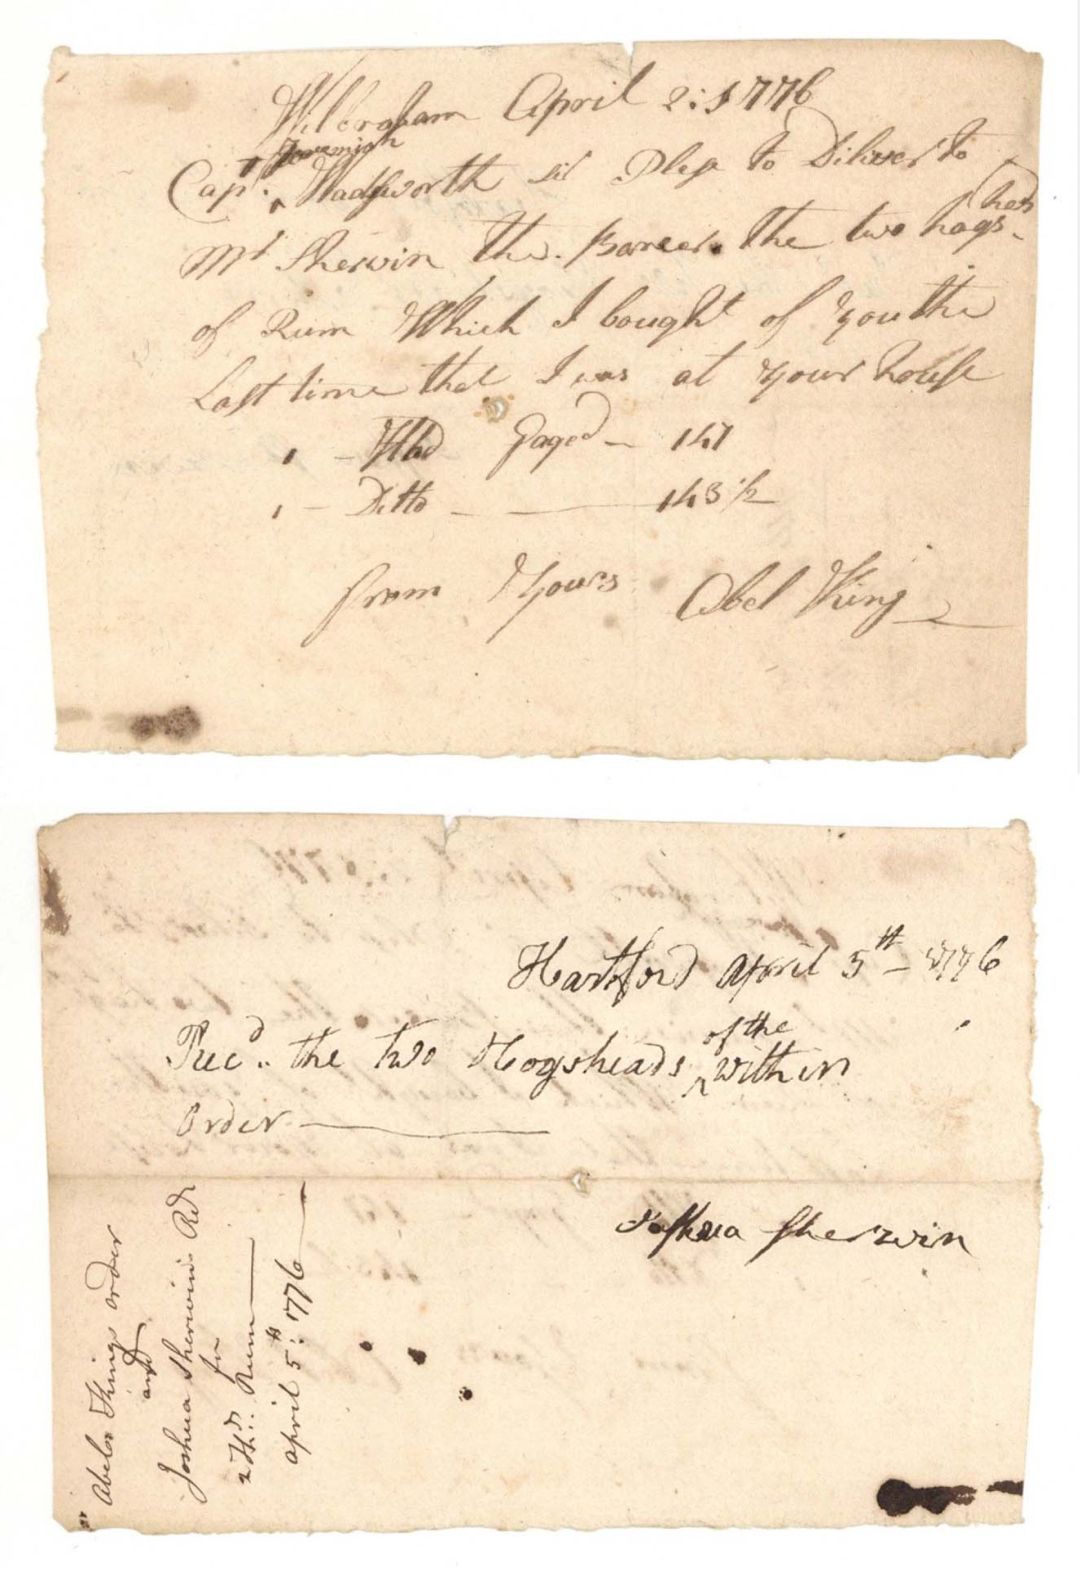 Wilbraham April 2: 1776
Jeremiah
Capt. ^ Wadsworth sir Plese to Diliver to
Mr Sherwin the Barear the two hogs-
heds
of Rum Which I bought of You the
Last time that I was at your house
1 - Hhd Gaged - 147
1 - Ditto - 143 1/2
from Yours Abel King
Hartford april 5th - 1776
of the
Recd. the two Hogsheads ^ within
order
Joshua Sherwin
Abel Kings order
and
Joshua Sherwins Rect
for
2 Hhd: Rum
april 5th: 1776